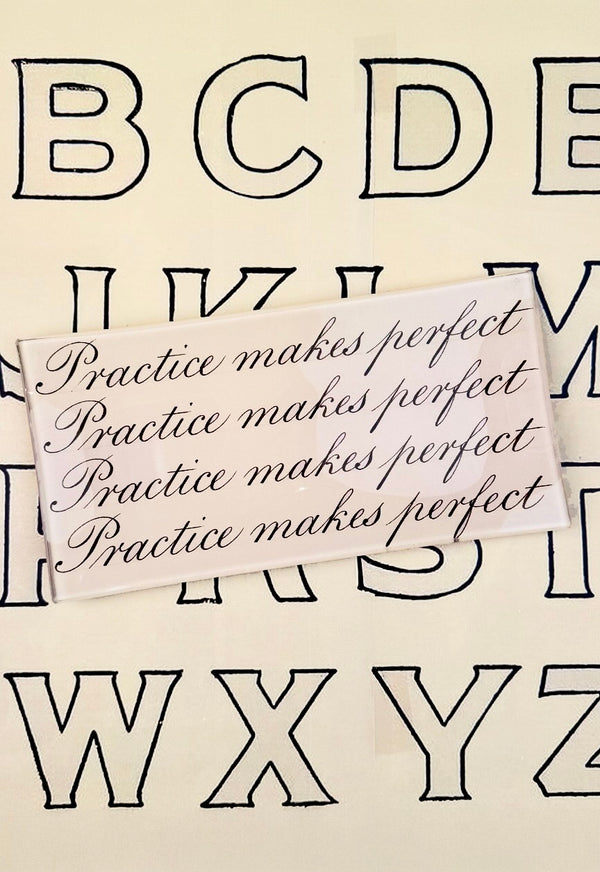 B C D E
J K L M
Practice makes perfect
Practice makes perfect
Practice makes perfect
Practice makes perfect
R S T
W X Y Z